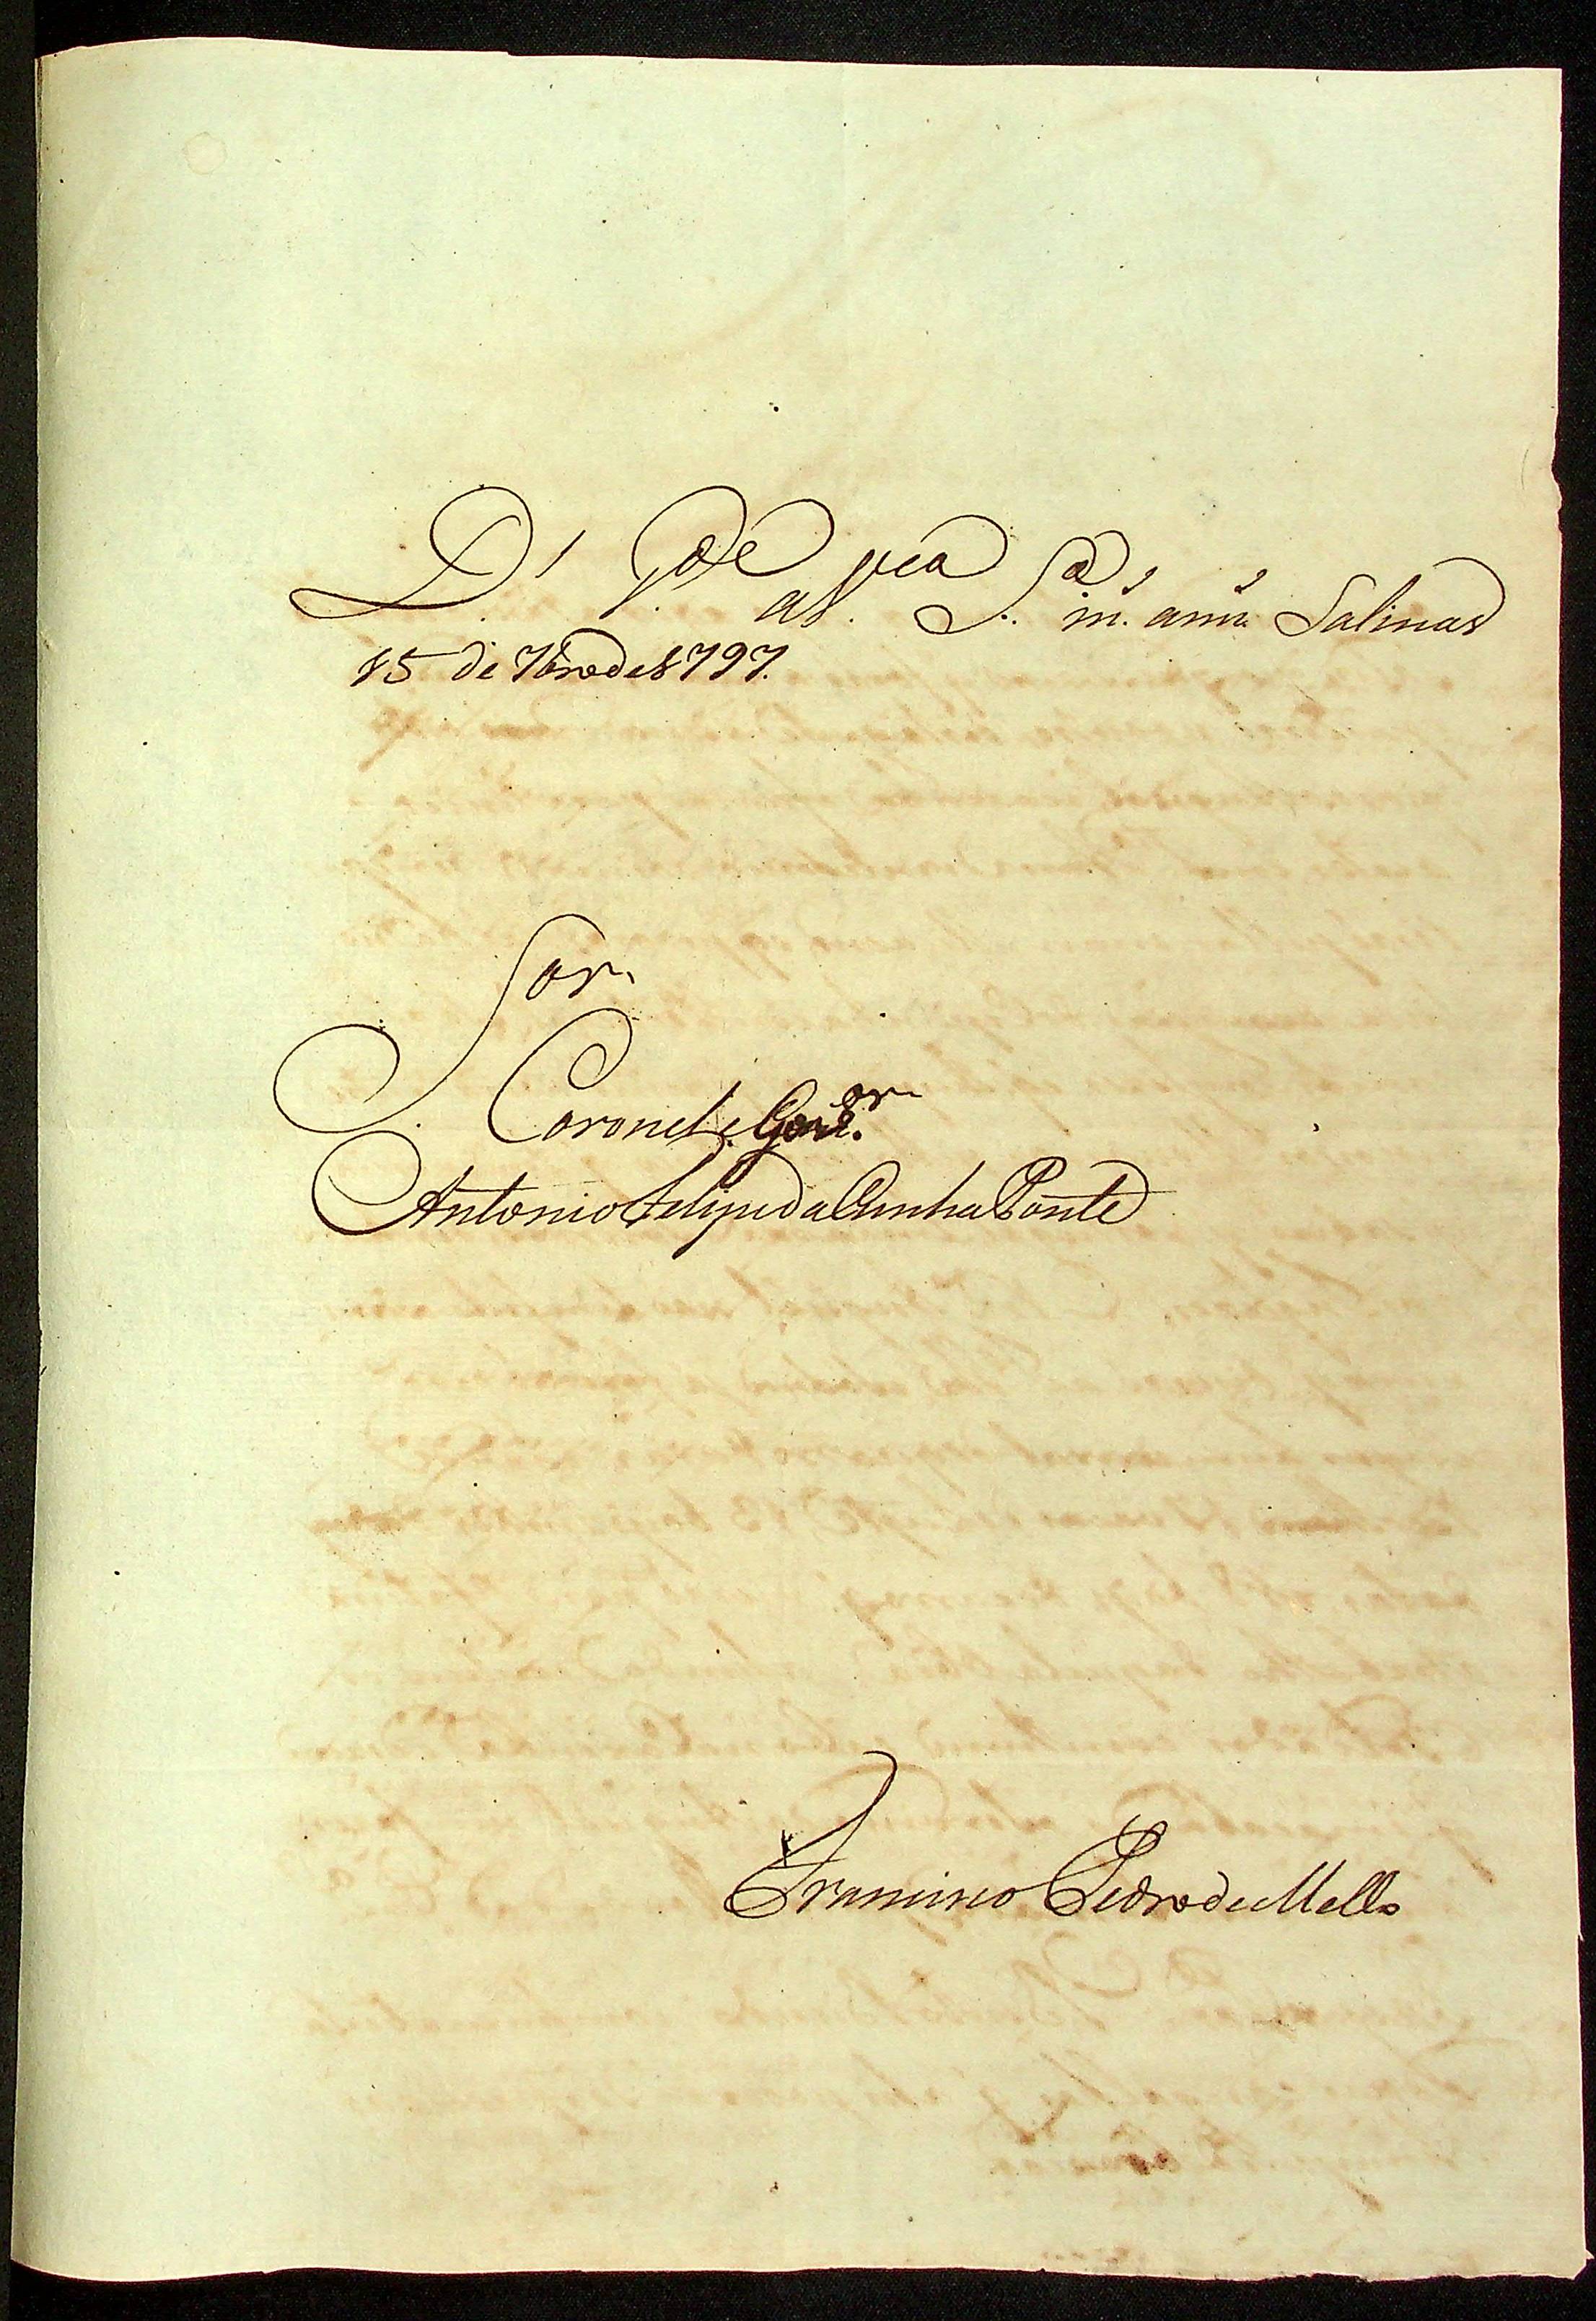 D.s g.de a V.ca S.a m.s ann.s Salinas
15 de 7bro de 1797.
S.or
Coronel e Gov.or
Antonio Felipe da Cunha Ponte
Francisco Pedro de Mello